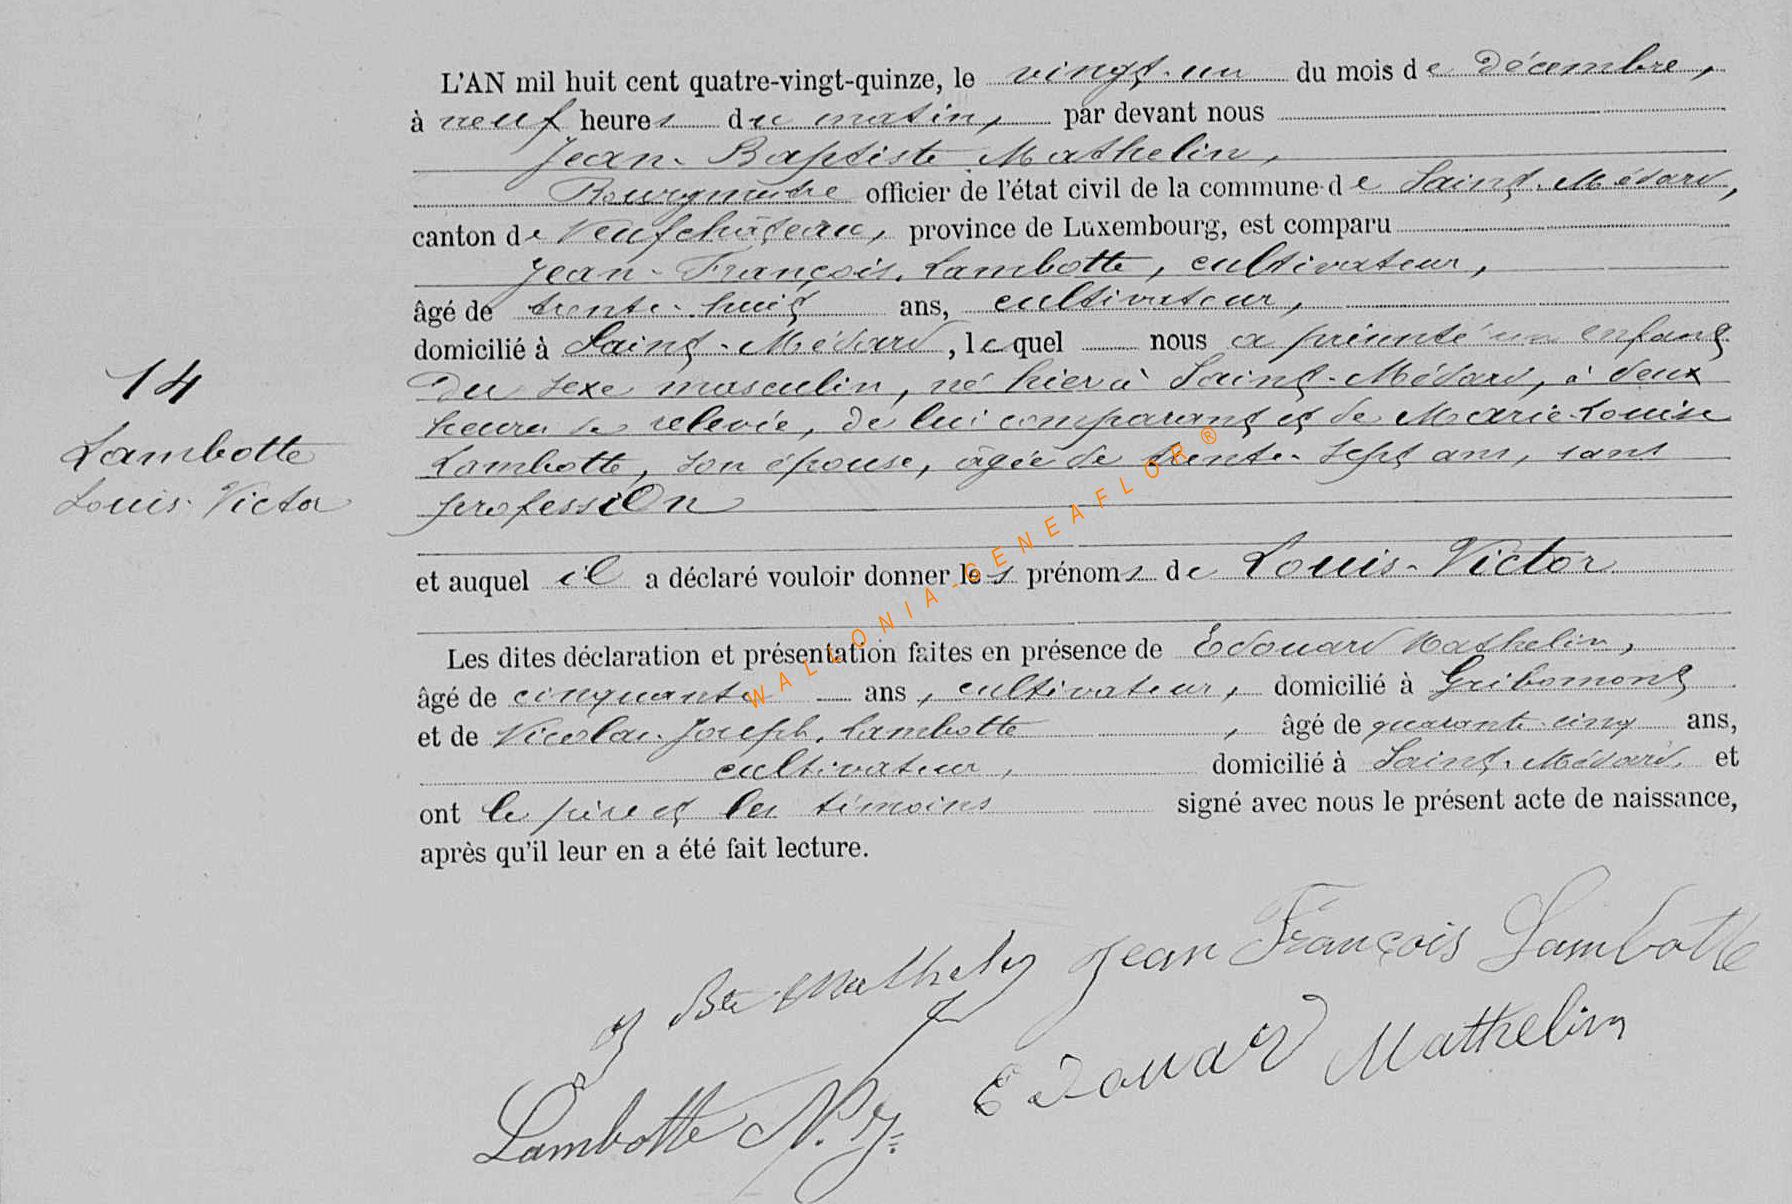 L'AN mil huit cent quatre-vingt-quinze, le vingt-un du mois de Décembre,
à neuf heures du matin, par devant nous
Jean-Baptiste Mathelin,
Bourgmestre officier de l'état civil de la commune de Saint-Médard,
canton de Neufchâteau, province de Luxembourg, est comparu
Jean-François Lambotte, cultivateur,
âgé de trente-huit ans, cultivateur,
domicilié à Saint-Médard, lequel nous a présenté un enfant
Du sexe masculin, né hier à Saint-Médard, à deux
heures de relevée, de lui comparant et de Marie-Louise
Lambotte, son épouse, âgée de trente-sept ans, sans
profession
14
Lambotte
Louis-Victor
et auquel il a déclaré vouloir donner les prénoms de Louis-Victor
Les dites déclaration et présentation faites en présence de Edouard Mathelin,
âgé de cinquante ans, cultivateur, domicilié à Gribomont
et de Nicolas-Joseph Lambotte, âgé de quarante-cinq ans,
cultivateur, domicilié à Saint-Médard, et
ont le père et les témoins signé avec nous le présent acte de naissance,
après qu'il leur en a été fait lecture.
J Bte Mathelin Jean François Lambotte
Lambotte N. J. Edouard Mathelin
WALLONIA-GENEAFLOR®